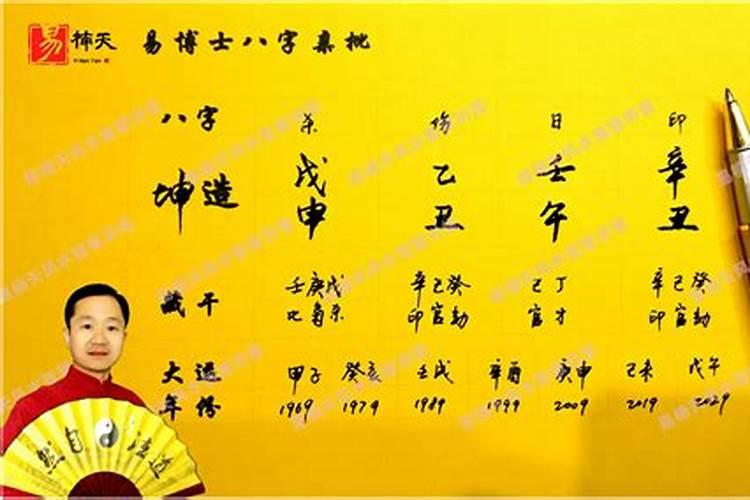 易 楠天 易博士八字亲批
八字 杀 伤 日 印
坤造 戊 乙 壬 辛
申 丑 午 丑
藏干 壬庚戊 辛己癸 己丁 辛己癸
比枭杀 印官劫 官才 印官劫
大运 甲子 癸亥 壬戌 辛酉 庚申 己未 戊午
年份 1969 1979 1989 1999 2009 2019 2029
道法自然